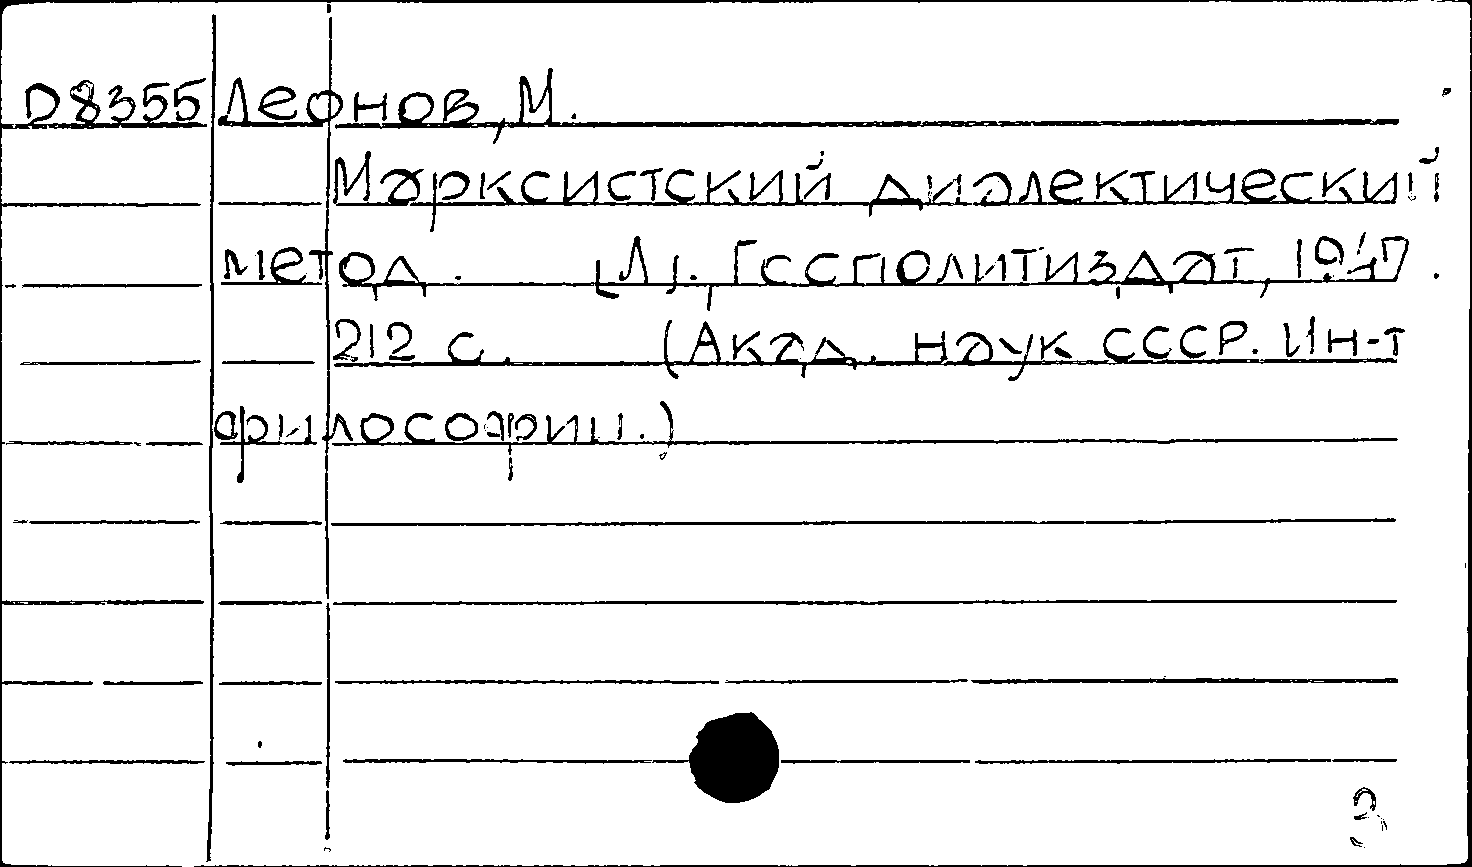 D8355 Леонов, М.
Марксистский диалектический
метод. [Л]., Госполитиздат, 1947.
212 с. (Акад. наук СССР. Ин-т
философии.)
3